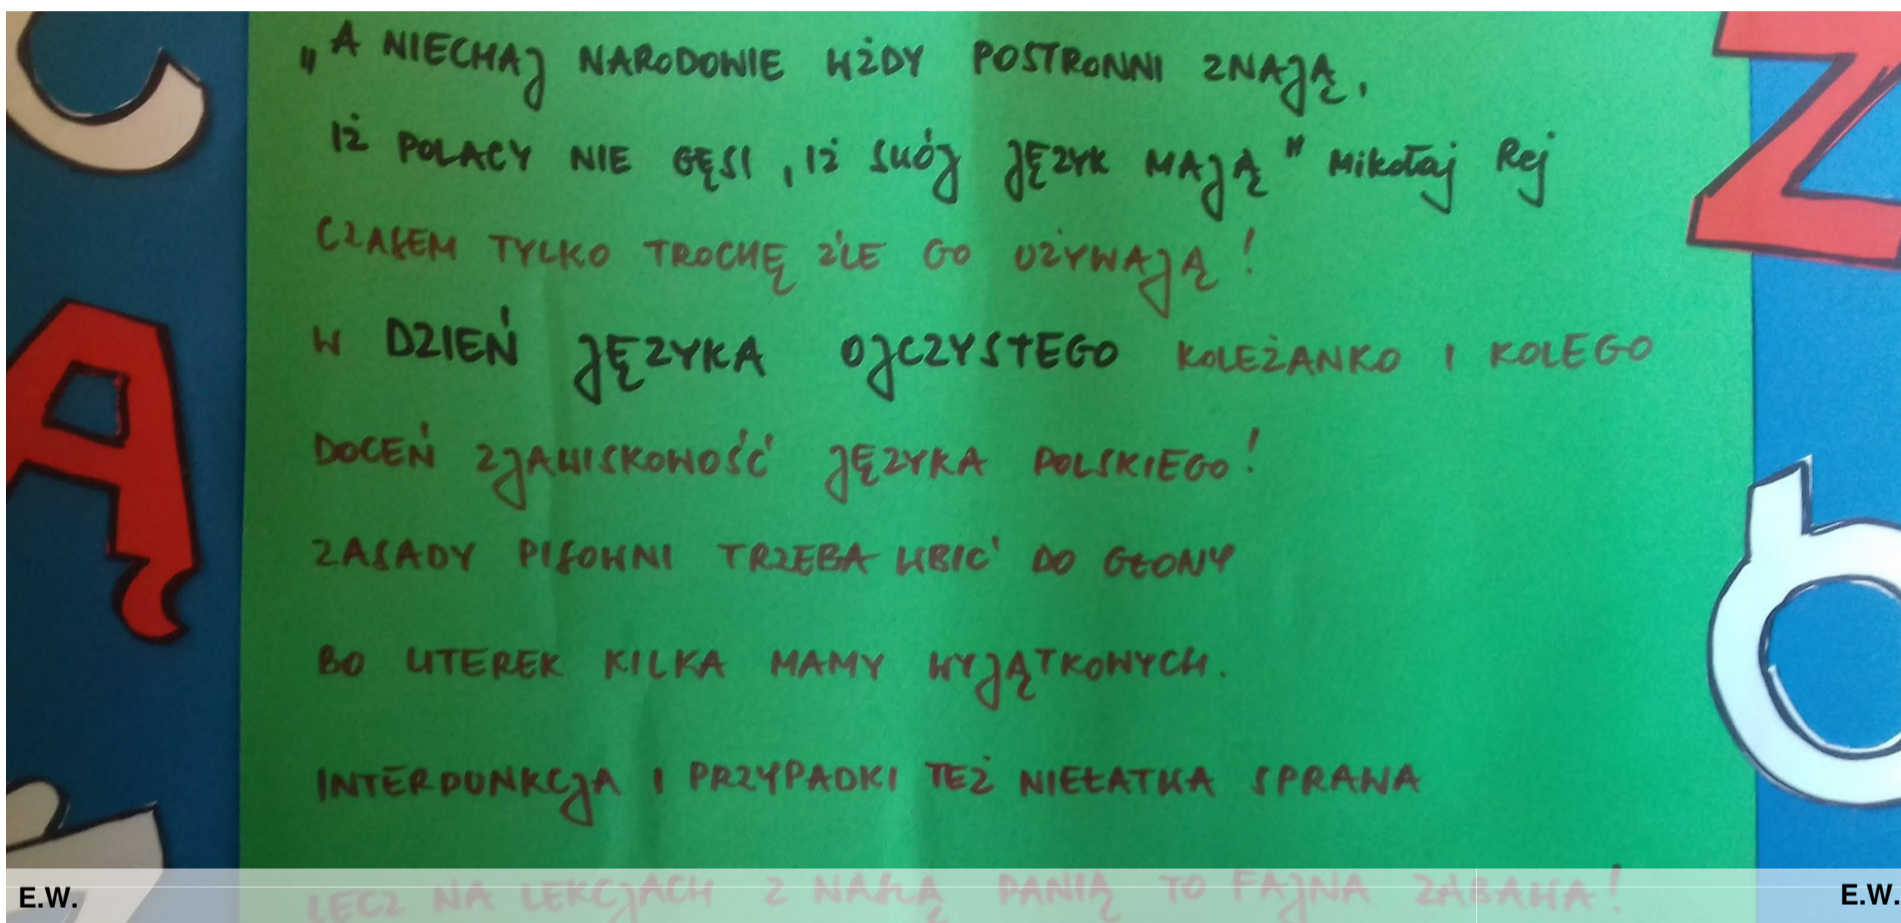 „A NIECHAJ NARODOWIE WŻDY POSTRONNI ZNAJĄ,
IŻ POLACY NIE GĘSI, IŻ SWÓJ JĘZYK MAJĄ" Mikołaj Rej
CZASEM TYLKO TROCHĘ ŹLE GO UŻYWAJĄ!
W DZIEŃ JĘZYKA OJCZYSTEGO KOLEŻANKO I KOLEGO
DOCEŃ ZJAWISKOWOŚĆ JĘZYKA POLSKIEGO!
ZASADY PISOWNI TRZEBA WBIĆ DO GŁOWY
BO LITEREK KILKA MAMY WYJĄTKOWYCH.
INTERPUNKCJA I PRZYPADKI TEŻ NIEŁATWA SPRAWA
LECZ NA LEKCJACH Z NASZĄ PANIĄ TO FAJNA ZABAWA!
E.W. E.W.
Ą
Z